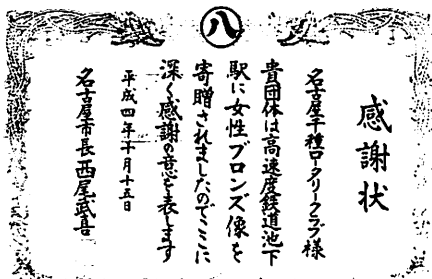 八
感謝状
名古屋千種ロータリークラブ様
貴団体は高速度鉄道池下
駅に女性ブロンズ像を
寄贈されましたのでここに
深く感謝の意を表します
平成四年十月十五日
名古屋市長西尾武喜